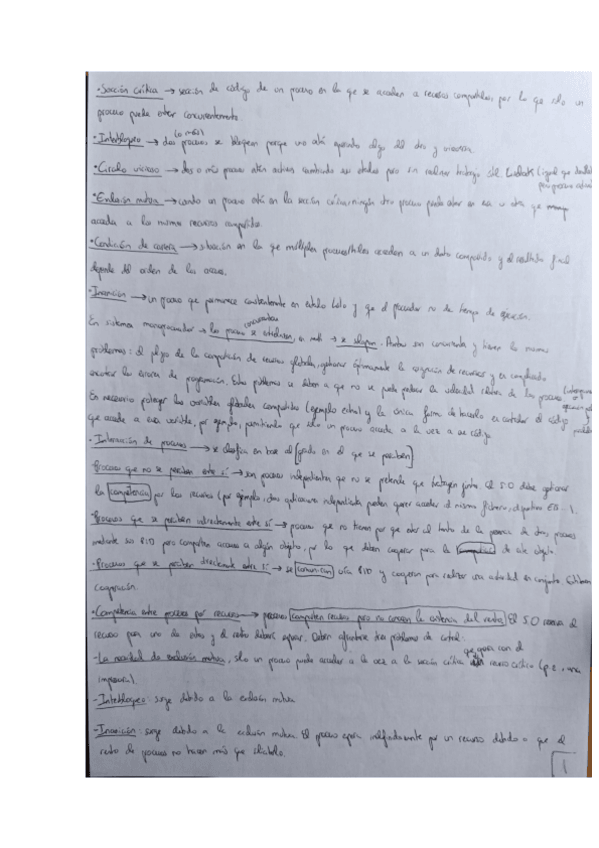 ·Sección crítica → sección de código de un proceso en la que se acceden a recursos compartidos, por lo que sólo un
proceso puede entrar concurrentemente.
·Interbloqueo → dos (o más) procesos se bloquean porque uno está esperando algo del otro y viceversa.
·Círculo vicioso → dos o más procesos están activos cambiando sus estados pero sin realizar trabajo útil. (igual que
pero procesos
·Exclusión mutua → cuando un proceso está en la sección crítica ningún otro proceso puede estar en esa u otra que
acceda a los mismos recursos compartidos.
·Condición de carrera → situación en la que múltiples procesos/hilos acceden a un dato compartido y el resultado final
depende del orden de los accesos.
·Inanición → un proceso que permanece constantemente en estado Listo y que el procesador no da tiempo de ejecución.
En sistemas monoprocesador → los procesos se entrelazan, en multi → se solapan. Ambos son concurrentes y tienen los mismos
problemas: el peligro de la compartición de recursos globales, gestionar óptimamente la asignación de recursos y es complicado
encontrar los errores de programación. Estos problemas se deben a que no se puede predecir la velocidad relativa de los procesos
Es necesario proteger las variables globales compartidas (ejemplo echo) y la única forma de hacerlo es controlar el código
que accede a esa variable, por ejemplo, permitiendo que sólo un proceso acceda a la vez a ese código
- Interacción de procesos → se clasifica en base al [grado en el que se perciben]
·Procesos que no se perciben entre sí → son procesos independientes que no se pretende que trabajen juntos. El S.O debe gestionar
la competencia por los recursos (por ejemplo, dos aplicaciones independientes pueden querer acceder al mismo fichero, dispositivo E/S...).
·Procesos que se perciben indirectamente entre sí → procesos que no tienen por que estar al tanto de la presencia de otros procesos
mediante sus PID pero comparten accesos a algún objeto, por lo que deben cooperar para la de este objeto.
·Procesos que se perciben directamente entre sí → se comunican vía PID y cooperan para realizar una actividad en conjunto.
cooperación.
·Competencia entre procesos por recursos → procesos comparten recursos pero no conocen la existencia del resto. El S.O reserva el
recurso para uno de ellos y el resto deberá esperar. Deben afrontarse tres problemas de control.
-La necesidad de exclusión mutua, sólo un proceso puede acceder a la vez a la sección crítica recurso crítico (p.e, una
impresora).
-Interbloqueo: surge debido a la exclusión mutua
-Inanición: surge debido a la exclusión mutua. El proceso espera indefinidamente por un recurso debido a que el
resto de procesos no hacen más que
1